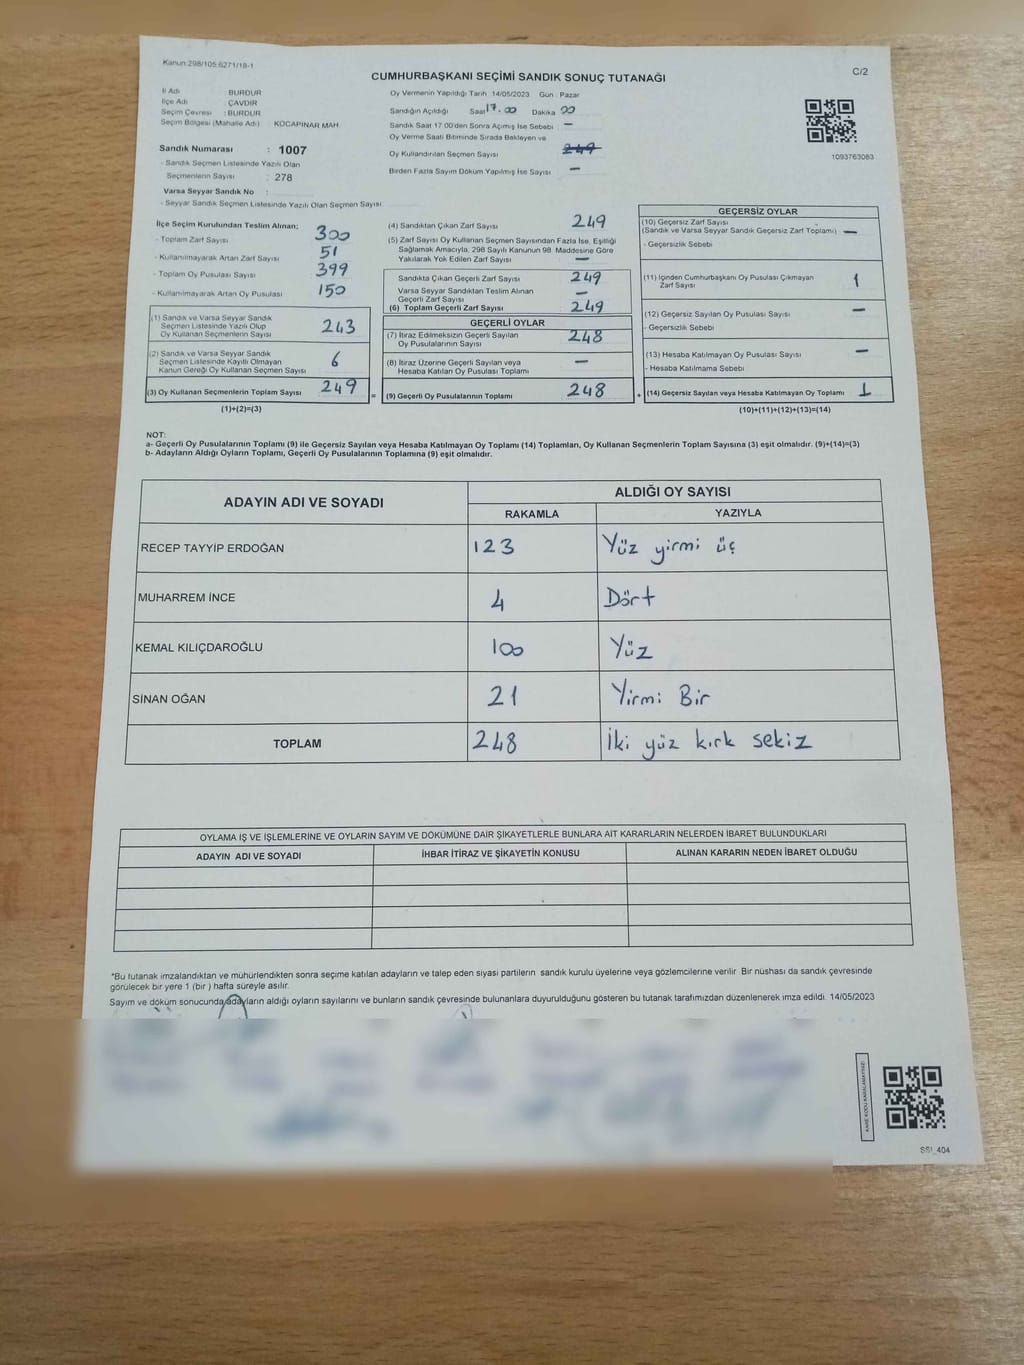 Kanun:298/105,6271/18-1
C/2
CUMHURBAŞKANI SEÇİMİ SANDIK SONUÇ TUTANAĞI
İl Adı : BURDUR
İlçe Adı : ÇAVDIR
Seçim Çevresi : BURDUR
Seçim Bölgesi (Mahalle Adı) : KOCAPINAR MAH.
Sandık Numarası : 1007
- Sandık Seçmen Listesinde Yazılı Olan
Seçmenlerin Sayısı : 278
Varsa Seyyar Sandık No :
- Seyyar Sandık Seçmen Listesinde Yazılı Olan Seçmen Sayısı
Oy Vermenin Yapıldığı Tarih 14/05/2023 Gün : Pazar
Sandığın Açıldığı Saat 17.00 Dakika 00
Sandık Saat 17.00'den Sonra Açılmış İse Sebebi –
Oy Verme Saati Bitiminde Sırada Bekleyen ve
Oy Kullandırılan Seçmen Sayısı 249
Birden Fazla Sayım Döküm Yapılmış İse Sayısı –
1093763083
İlçe Seçim Kurulundan Teslim Alınan;
- Toplam Zarf Sayısı 300
- Kullanılmayarak Artan Zarf Sayısı 51
- Toplam Oy Pusulası Sayısı 399
- Kullanılmayarak Artan Oy Pusulası 150
(1) Sandık ve Varsa Seyyar Sandık
Seçmen Listesinde Yazılı Olup
Oy Kullanan Seçmenlerin Sayısı 243
(2) Sandık ve Varsa Seyyar Sandık
Seçmen Listesinde Kayıtlı Olmayan
Kanun Gereği Oy Kullanan Seçmen Sayısı 6
(3) Oy Kullanan Seçmenlerin Toplam Sayısı 249 =
(1)+(2)=(3)
(4) Sandıktan Çıkan Zarf Sayısı 249
(5) Zarf Sayısı Oy Kullanan Seçmen Sayısından Fazla İse, Eşitliği
Sağlamak Amacıyla, 298 Sayılı Kanunun 98. Maddesine Göre
Yakılarak Yok Edilen Zarf Sayısı –
Sandıkta Çıkan Geçerli Zarf Sayısı 249
Varsa Seyyar Sandıktan Teslim Alınan
Geçerli Zarf Sayısı –
(6) Toplam Geçerli Zarf Sayısı 249
GEÇERLİ OYLAR
(7) İtiraz Edilmeksizin Geçerli Sayılan
Oy Pusulalarının Sayısı 248
(8) İtiraz Üzerine Geçerli Sayılan veya
Hesaba Katılan Oy Pusulası Toplamı –
(9) Geçerli Oy Pusulalarının Toplamı 248 +
GEÇERSİZ OYLAR
(10) Geçersiz Zarf Sayısı
(Sandık ve Varsa Seyyar Sandık Geçersiz Zarf Toplamı) –
- Geçersizlik Sebebi
(11) İçinden Cumhurbaşkanı Oy Pusulası Çıkmayan
Zarf Sayısı 1
(12) Geçersiz Sayılan Oy Pusulası Sayısı –
- Geçersizlik Sebebi
(13) Hesaba Katılmayan Oy Pusulası Sayısı –
- Hesaba Katılmama Sebebi
(14) Geçersiz Sayılan veya Hesaba Katılmayan Oy Toplamı 1
(10)+(11)+(12)+(13)=(14)
NOT:
a- Geçerli Oy Pusulalarının Toplamı (9) ile Geçersiz Sayılan veya Hesaba Katılmayan Oy Toplamı (14) Toplamları, Oy Kullanan Seçmenlerin Toplam Sayısına (3) eşit olmalıdır. (9)+(14)=(3)
b- Adayların Aldığı Oyların Toplamı, Geçerli Oy Pusulalarının Toplamına (9) eşit olmalıdır.
ADAYIN ADI VE SOYADI
ALDIĞI OY SAYISI
RAKAMLA YAZIYLA
RECEP TAYYİP ERDOĞAN 123 Yüz yirmi üç
MUHARREM İNCE 4 Dört
KEMAL KILIÇDAROĞLU 100 Yüz
SİNAN OĞAN 21 Yirmi Bir
TOPLAM 248 İki yüz kırk sekiz
OYLAMA İŞ VE İŞLEMLERİNE VE OYLARIN SAYIM VE DÖKÜMÜNE DAİR ŞİKAYETLERLE BUNLARA AİT KARARLARIN NELERDEN İBARET BULUNDUKLARI
ADAYIN ADI VE SOYADI İHBAR İTİRAZ VE ŞİKAYETİN KONUSU ALINAN KARARIN NEDEN İBARET OLDUĞU
*Bu tutanak imzalandıktan ve mühürlendikten sonra seçime katılan adayların ve talep eden siyasi partilerin sandık kurulu üyelerine veya gözlemcilerine verilir. Bir nüshası da sandık çevresinde
görülecek bir yere 1 (bir) hafta süreyle asılır.
Sayım ve döküm sonucunda adayların aldığı oyların sayılarını ve bunların sandık çevresinde bulunanlara duyurulduğunu gösteren bu tutanak tarafımızdan düzenlenerek imza edildi. 14/05/2023
KARE KODU KARALAMAYINIZ!
SSI_404